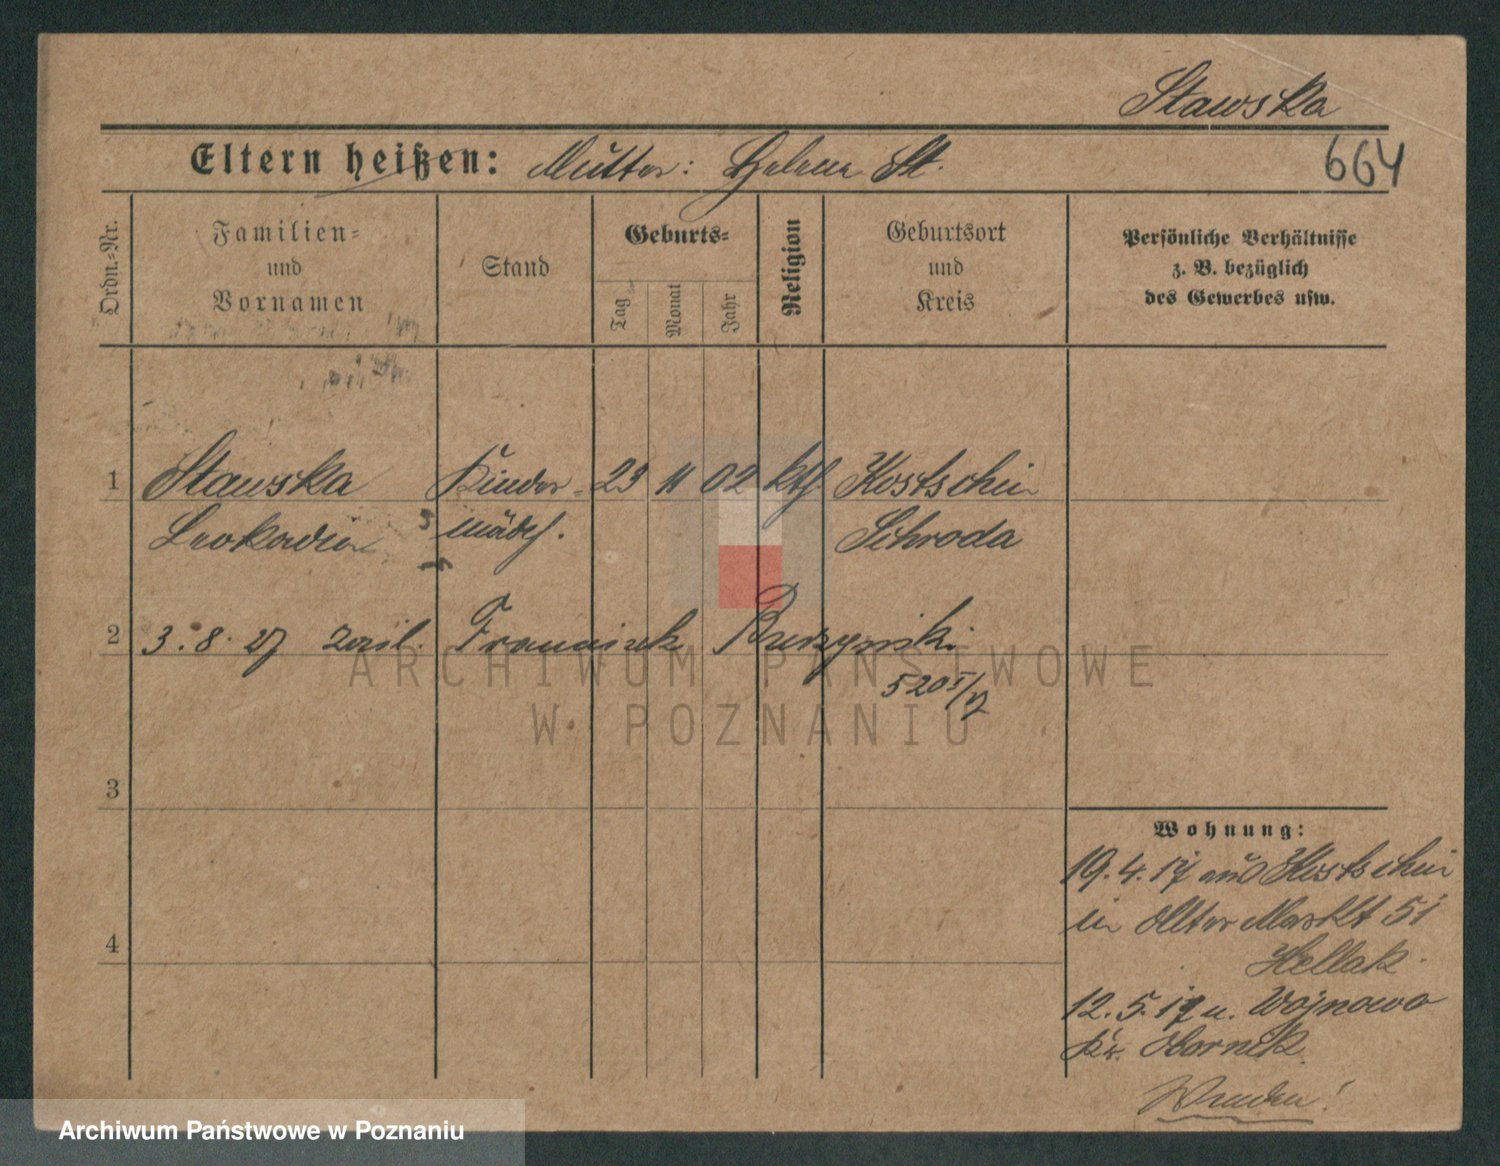 Stawska
Eltern heißen: Mutter: Helena St.
664
Ordn.-Nr.
Familien-
und
Vornamen
Stand
Geburts-
Tag
Monat
Jahr
Religion
Geburtsort
und
Kreis
Persönliche Verhältnisse
z. B. bezüglich
des Gewerbes usw.
1 Stawska Kinder- 23 11 02 kth Kostschin
Leokadia mädch. Schroda
2 3.8.27 zaśl. Franciszek Budzyński
520 I/17
ARCHIWUM PAŃSTWOWE
W POZNANIU
3
4
Wohnung:
19.4.17 aus Kostschin
in Alter Markt 51
Hellak.
12.5.17 n. Wojnowo
Kr. Obornik
Wenden!
Archiwum Państwowe w Poznaniu